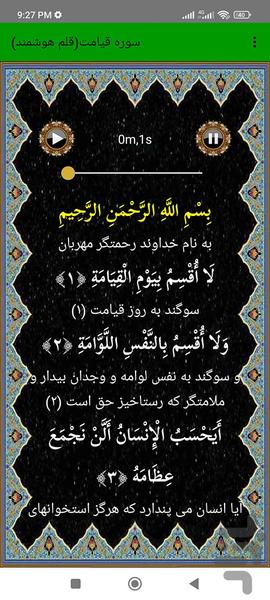 9:27 PM
سوره قیامت(قلم هوشمند)
0m,1s
بِسْمِ اللَّهِ الرَّحْمَنِ الرَّحِيمِ
به نام خداوند رحمتگر مهربان
لَا أُقْسِمُ بِيَوْمِ الْقِيَامَةِ ﴿۱﴾
سوگند به روز قیامت (۱)
وَلَا أُقْسِمُ بِالنَّفْسِ اللَّوَّامَةِ ﴿۲﴾
و سوگند به نفس لوامه و وجدان بیدار و
ملامتگر که رستاخیز حق است (۲)
أَيَحْسَبُ الْإِنْسَانُ أَلَّنْ نَجْمَعَ
عِظَامَهُ ﴿۳﴾
آیا انسان می پندارد که هرگز استخوانهای